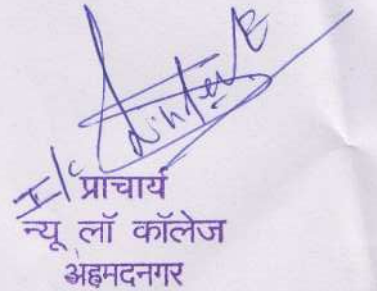 I/C
प्राचार्य
न्यू लॉ कॉलेज
अहमदनगर